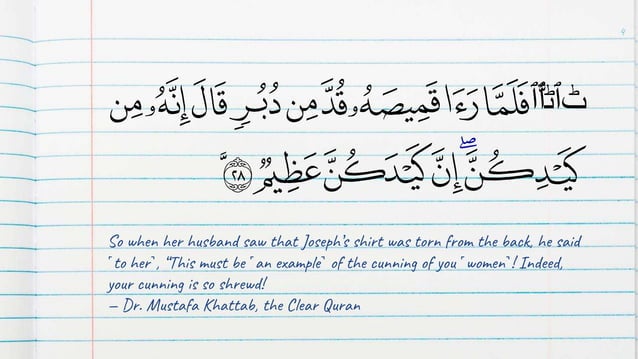 فَلَمَّا رَءَا قَمِيصَهُۥ قُدَّ مِن دُبُرٍۢ قَالَ إِنَّهُۥ مِن
كَيْدِكُنَّ ۖ إِنَّ كَيْدَكُنَّ عَظِيمٌۭ ٢٨
So when her husband saw that Joseph's shirt was torn from the back, he said
˹to her˺, "This must be ˹an example˺ of the cunning of you ˹women˺! Indeed,
your cunning is so shrewd!
– Dr. Mustafa Khattab, the Clear Quran